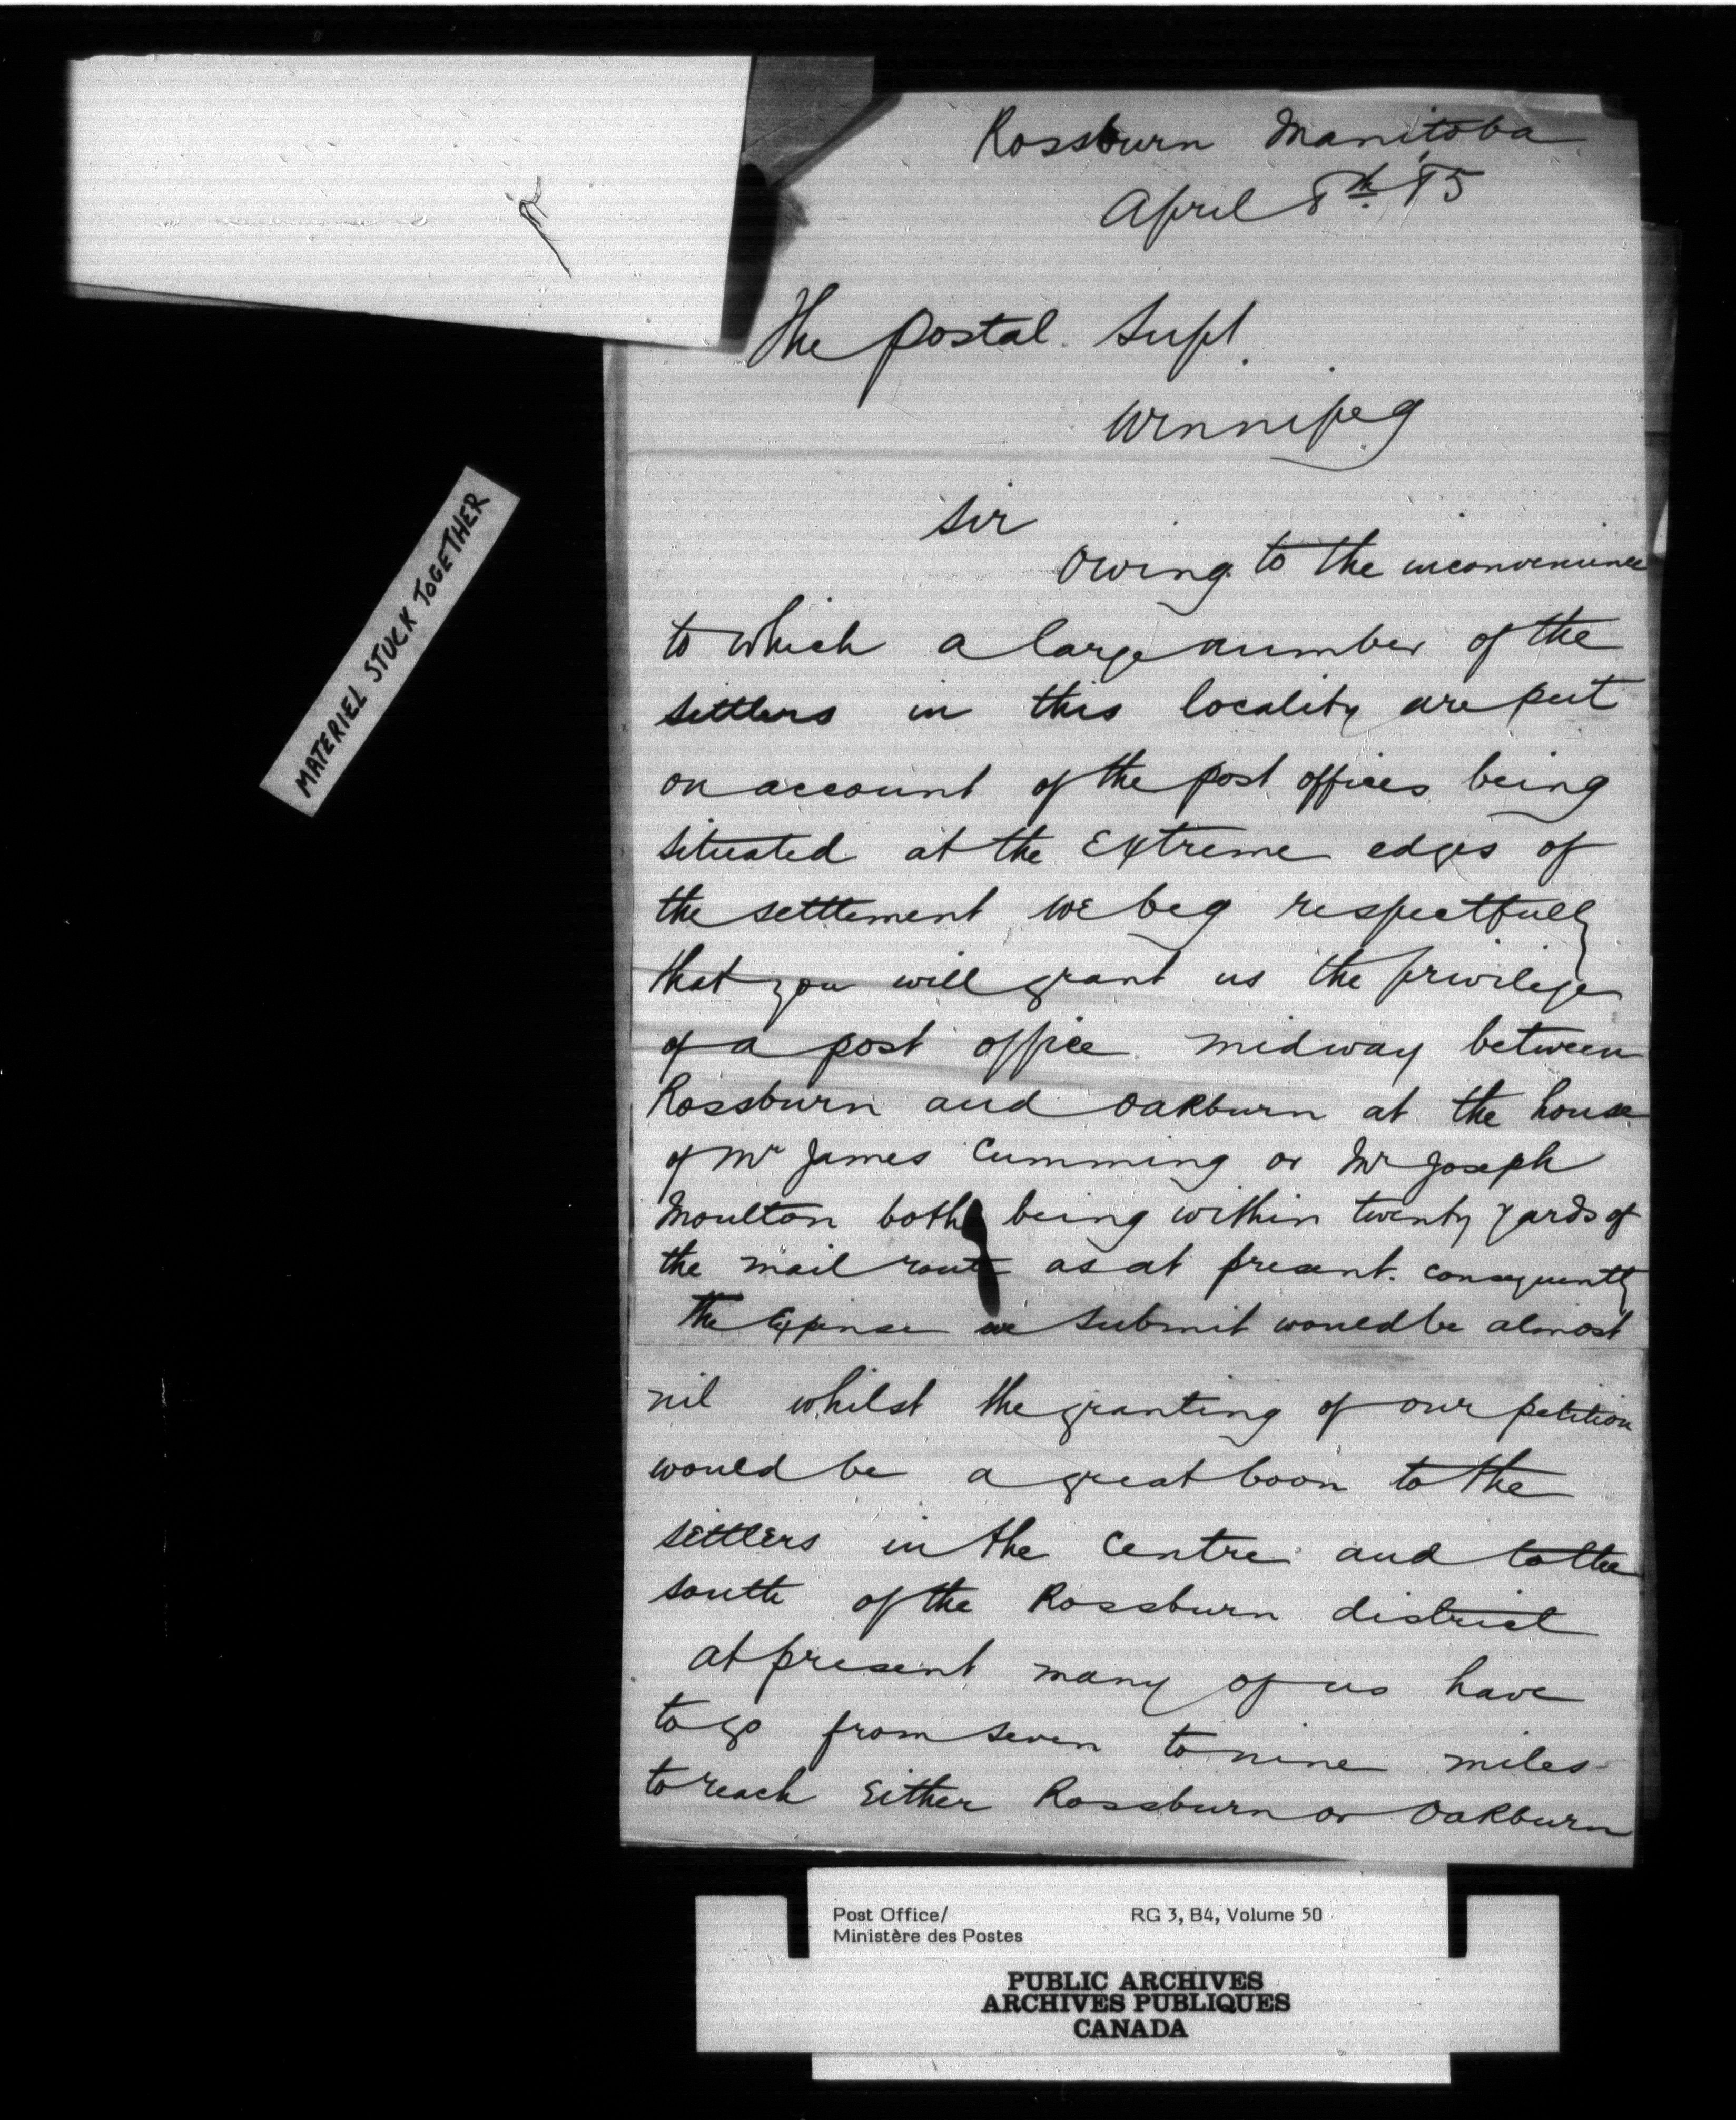 Rossburn Manitoba
April 8th 85
The Postal Supt.
Winnipeg
Sir
Owing to the inconvenience
to which a large number of the
settlers in this locality are put
on account of the post offices being
situated at the Extreme edges of
the settlement we beg respectfully
that you will grant us the privilege
of a post office midway between
Rossburn and Oakburn at the house
of Mr James Cumming or Mr Joseph
Moulton both being within twenty yards of
the mail route as at present. consequently
the Expense we submit would be almost
nil whilst the granting of our petition
would be a great boon to the
settlers in the Centre and to the
south of the Rossburn district
at present many of us have
to go from seven to nine miles
to reach Either Rossburn or Oakburn
MATERIEL STUCK TOGETHER
Post Office/ RG 3, B4, Volume 50
Ministère des Postes
PUBLIC ARCHIVES
ARCHIVES PUBLIQUES
CANADA